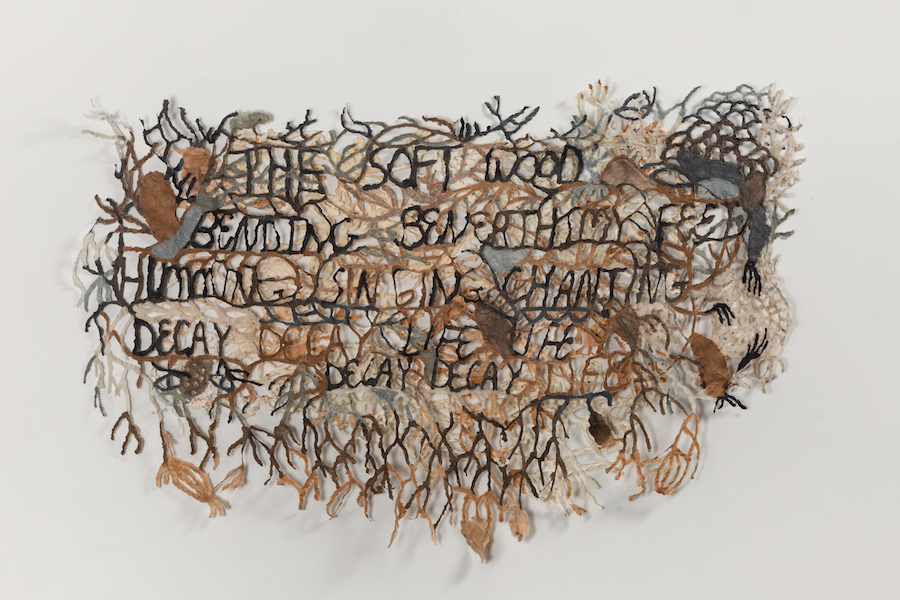 THE SOFT WOOD
BENDING BENEATH MY FEET
HUMMING SINGING CHANTING
DECAY DECAY LIFE LIFE
DECAY DECAY LIFE